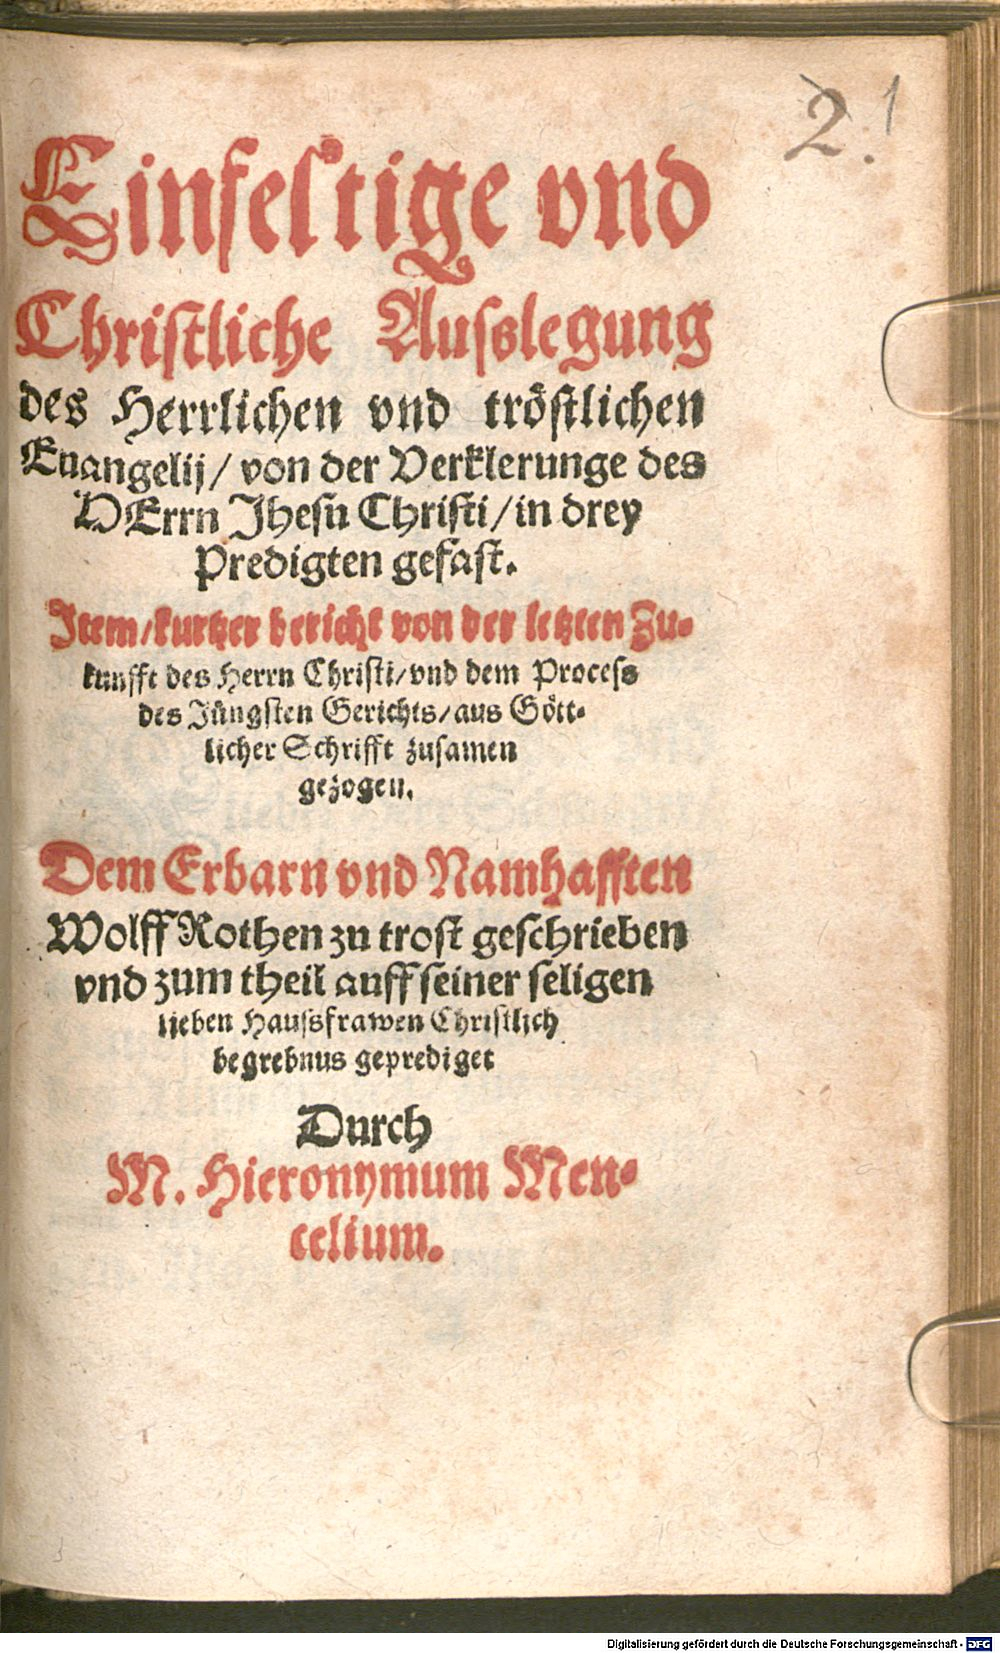 2. 1
Einfeltige vnd
Christliche Ausslegung
des Herrlichen vnd tröstlichen
Euangelij / von der Verklerunge des
HErrn Jhesu Christi / in drey
Predigten gefast.
Item / kurtzer bericht von der letzten Zu-
kunfft des Herrn Christi / vnd dem Process
des Jüngsten Gerichts / aus Gött-
licher Schrifft zusamen
gezogen.
Dem Erbarn vnd Namhafften
Wolff Rothen zu trost geschrieben
vnd zum theil auff seiner seligen
lieben Haussfrawen Christlich
begrebnus geprediget
Durch
M. Hieronymum Men-
celium.
Digitalisierung gefördert durch die Deutsche Forschungsgemeinschaft - DFG